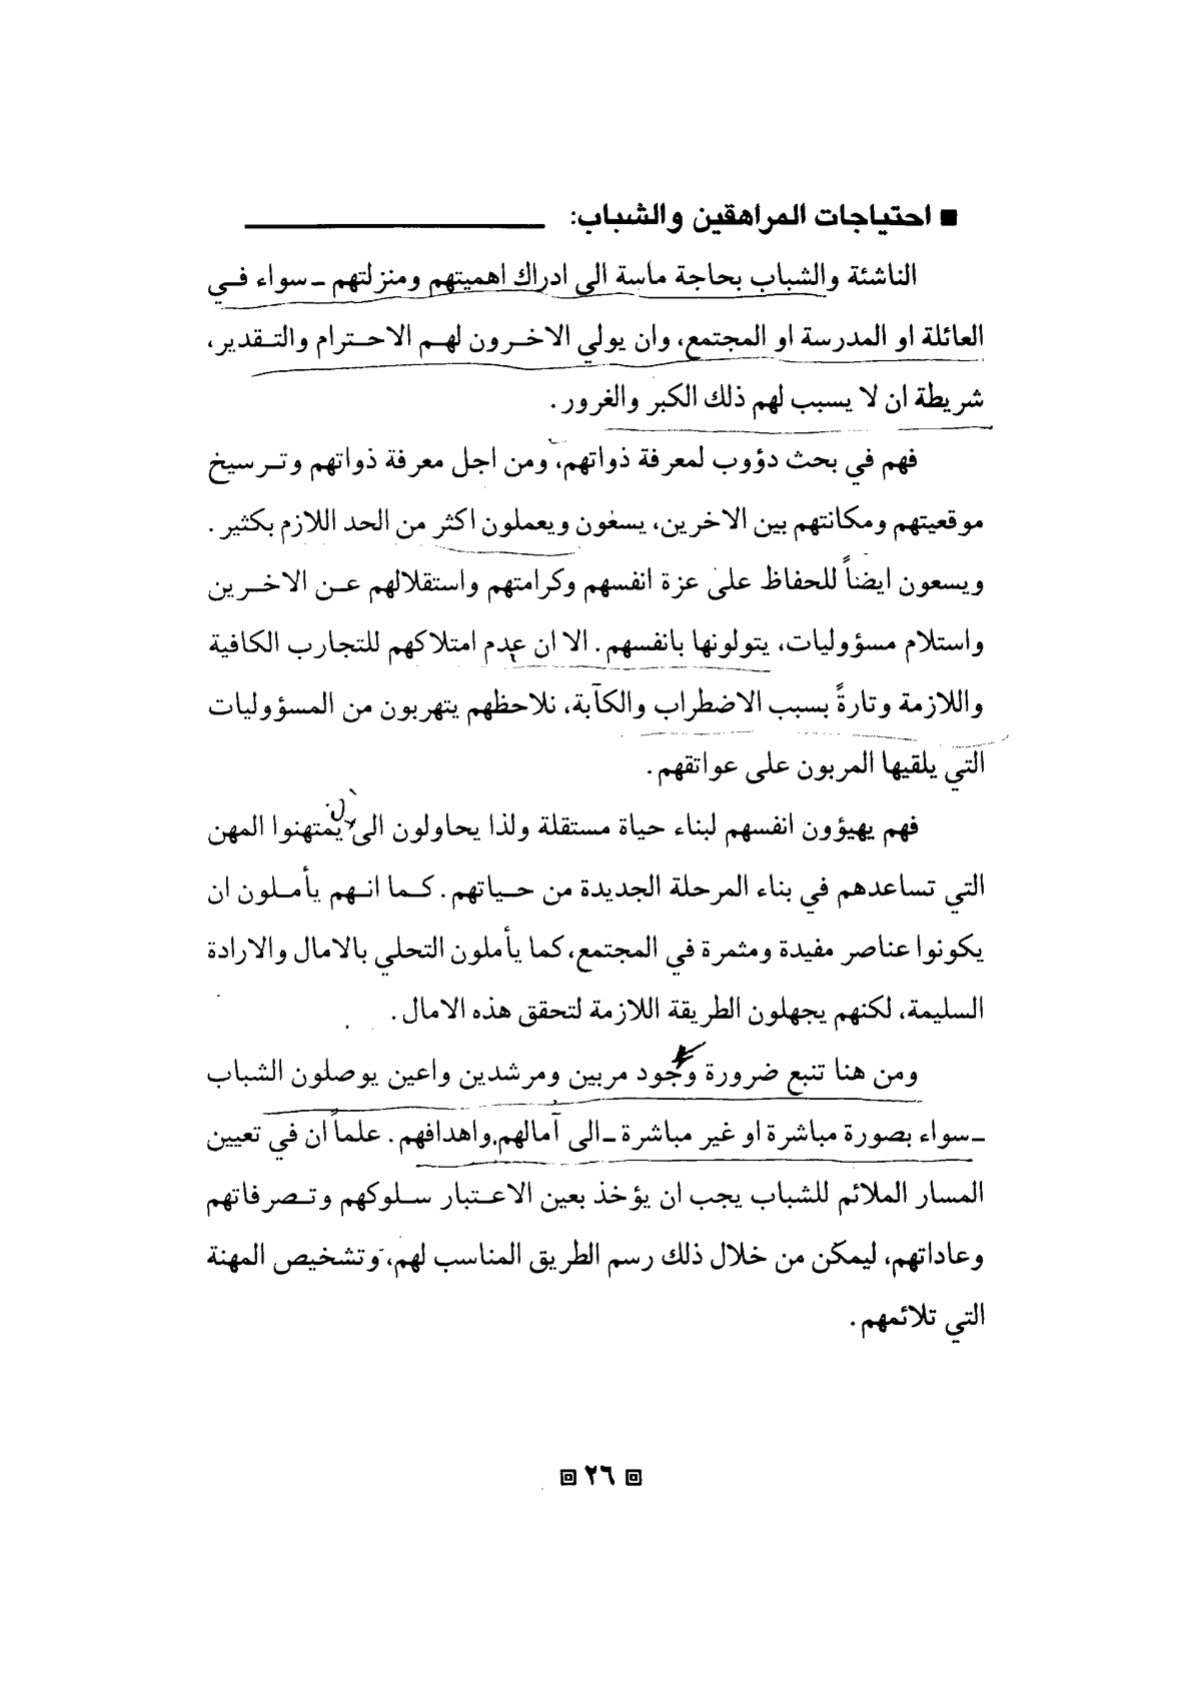 ■ احتياجات المراهقين والشباب:
الناشئة والشباب بحاجة ماسة الى ادراك اهميتهم ومنزلتهم ـ سواء في
العائلة او المدرسة او المجتمع، وان يولي الاخرون لهم الاحترام والتقدير،
شريطة ان لا يسبب لهم ذلك الكبر والغرور.
فهم في بحث دؤوب لمعرفة ذواتهم، ومن اجل معرفة ذواتهم وترسيخ
موقعيتهم ومكانتهم بين الاخرين، يسعون ويعملون اكثر من الحد اللازم بكثير.
ويسعون ايضاً للحفاظ على عزة انفسهم وكرامتهم واستقلالهم عن الاخرين
واستلام مسؤوليات، يتولونها بانفسهم. الا ان عدم امتلاكهم للتجارب الكافية
واللازمة وتارةً بسبب الاضطراب والكآبة، نلاحظهم يتهربون من المسؤوليات
التي يلقيها المربون على عواتقهم.
فهم يهيؤون انفسهم لبناء حياة مستقلة ولذا يحاولون الى يمتهنوا المهن
التي تساعدهم في بناء المرحلة الجديدة من حياتهم. كما انهم يأملون ان
يكونوا عناصر مفيدة ومثمرة في المجتمع، كما يأملون التحلي بالامال والارادة
السليمة، لكنهم يجهلون الطريقة اللازمة لتحقق هذه الامال.
ومن هنا تنبع ضرورة وجود مربين ومرشدين واعين يوصلون الشباب
ـ سواء بصورة مباشرة او غير مباشرة ـ الى آمالهم واهدافهم. علماً ان في تعيين
المسار الملائم للشباب يجب ان يؤخذ بعين الاعتبار سلوكهم وتصرفاتهم
وعاداتهم، ليمكن من خلال ذلك رسم الطريق المناسب لهم، وتشخيص المهنة
التي تلائمهم.
٢٦